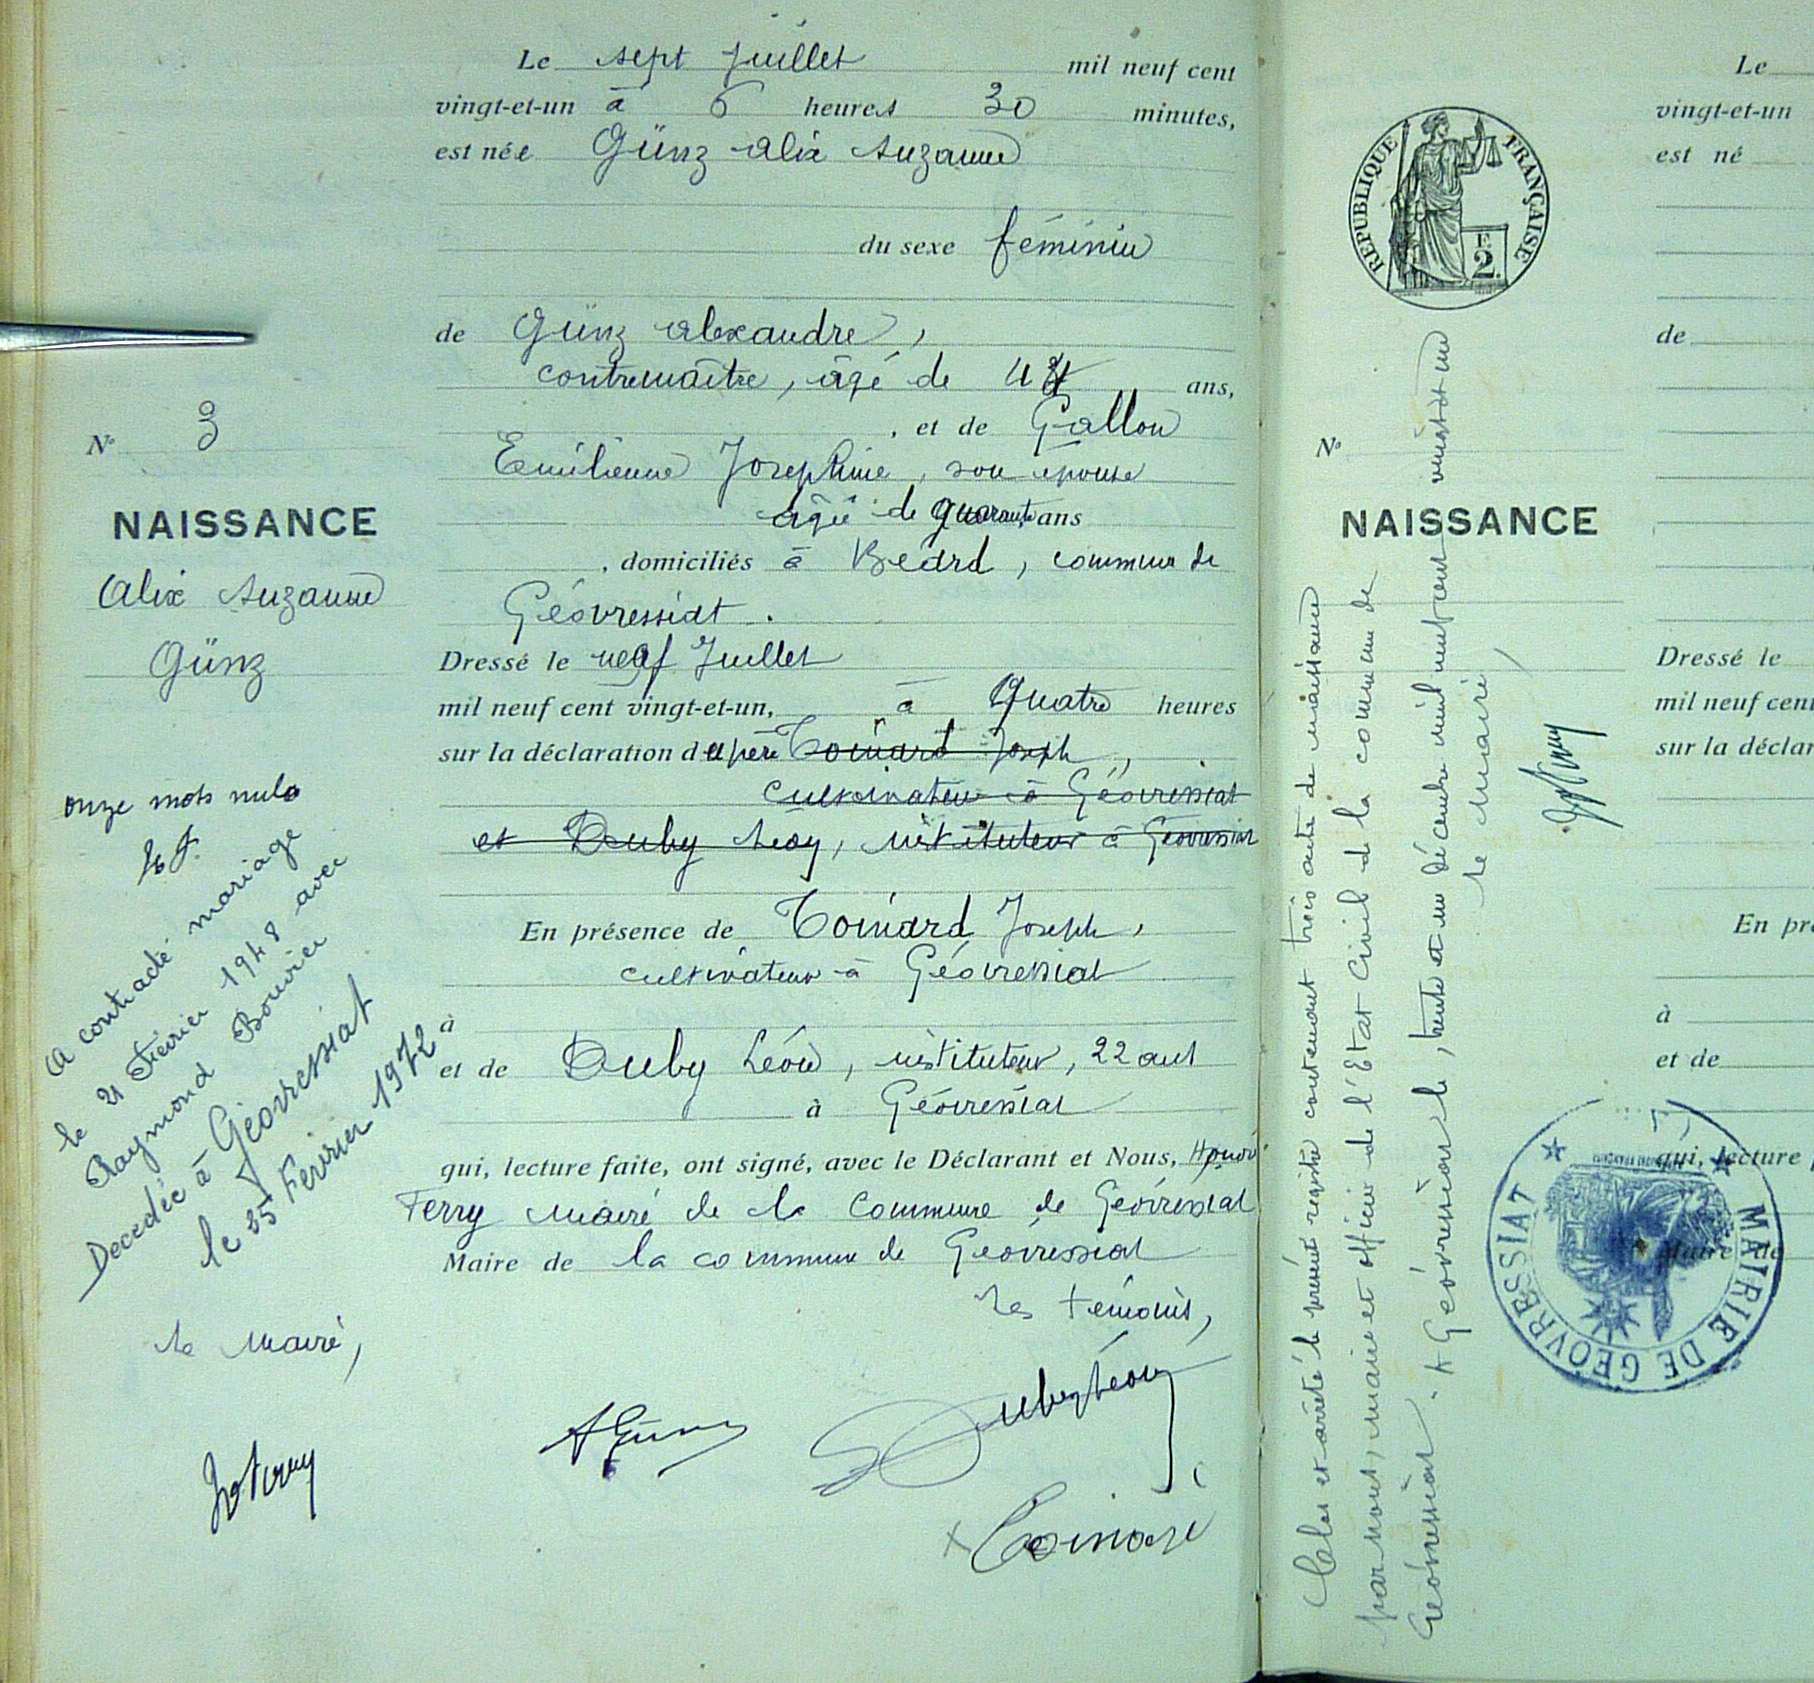 Le sept Juillet mil neuf cent
vingt-et-un à 6 heures 30 minutes,
est née Günz Alix Suzanne
du sexe féminin
de Günz Alexandre,
contremaître, âgé de 4 ans,
, et de Gallon
Emilienne Josephine, son épouse
âgée de quarante ans
, domiciliés à Béard, commune de
Géovressiat.
Dressé le neuf Juillet
mil neuf cent vingt-et-un, à Quatre heures
sur la déclaration du père Toinard Joseph,
cultivateur à Géovressiat
et Duby Léon, instituteur à Géovressiat
En présence de Toinard Joseph,
cultivateur à Géovressiat
à
et de Duby Léon, instituteur, 22 ans
à Géovressiat
qui, lecture faite, ont signé, avec le Déclarant et Nous, Honoré
Ferry Maire de la Commune de Géovressiat
Maire de la commune de Géovressiat
Les témoins,
AGünz
Duby Léon
Toinard
N° 3
NAISSANCE
Alix Suzanne
Günz
onze mots nuls
H F.
A contracté mariage
le 21 Février 1948 avec
Raymond Bouvier
Decedée à Géovressiat
le 25 Fevrier 1972
Le Maire,
HoFerry
RÉPUBLIQUE FRANÇAISE
F.
2.
N°
NAISSANCE
Clos et arrêté le présent registre contenant trois actes de naissance
par nous, maire et officier de l'Etat Civil de la commune de
Géovressiat. A Géovressiat le, trente et un décembre mil neuf cent vingt et un
Le Maire,
HoFerry
MAIRIE DE GEOVRESSIAT
Le
vingt-et-un
est né
de
Dressé le
mil neuf cent
sur la déclar
En pré
à
et de
qui, lecture f
Maire de